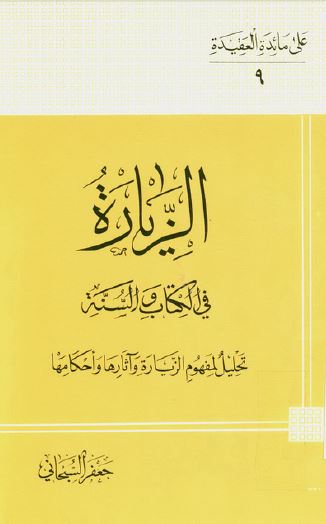 على مائدة العقيدة
٩
الزيارة
في الكتاب والسنة
تحليل لمفهوم الزيارة وآثارها وأحكامها
جعفر السبحاني